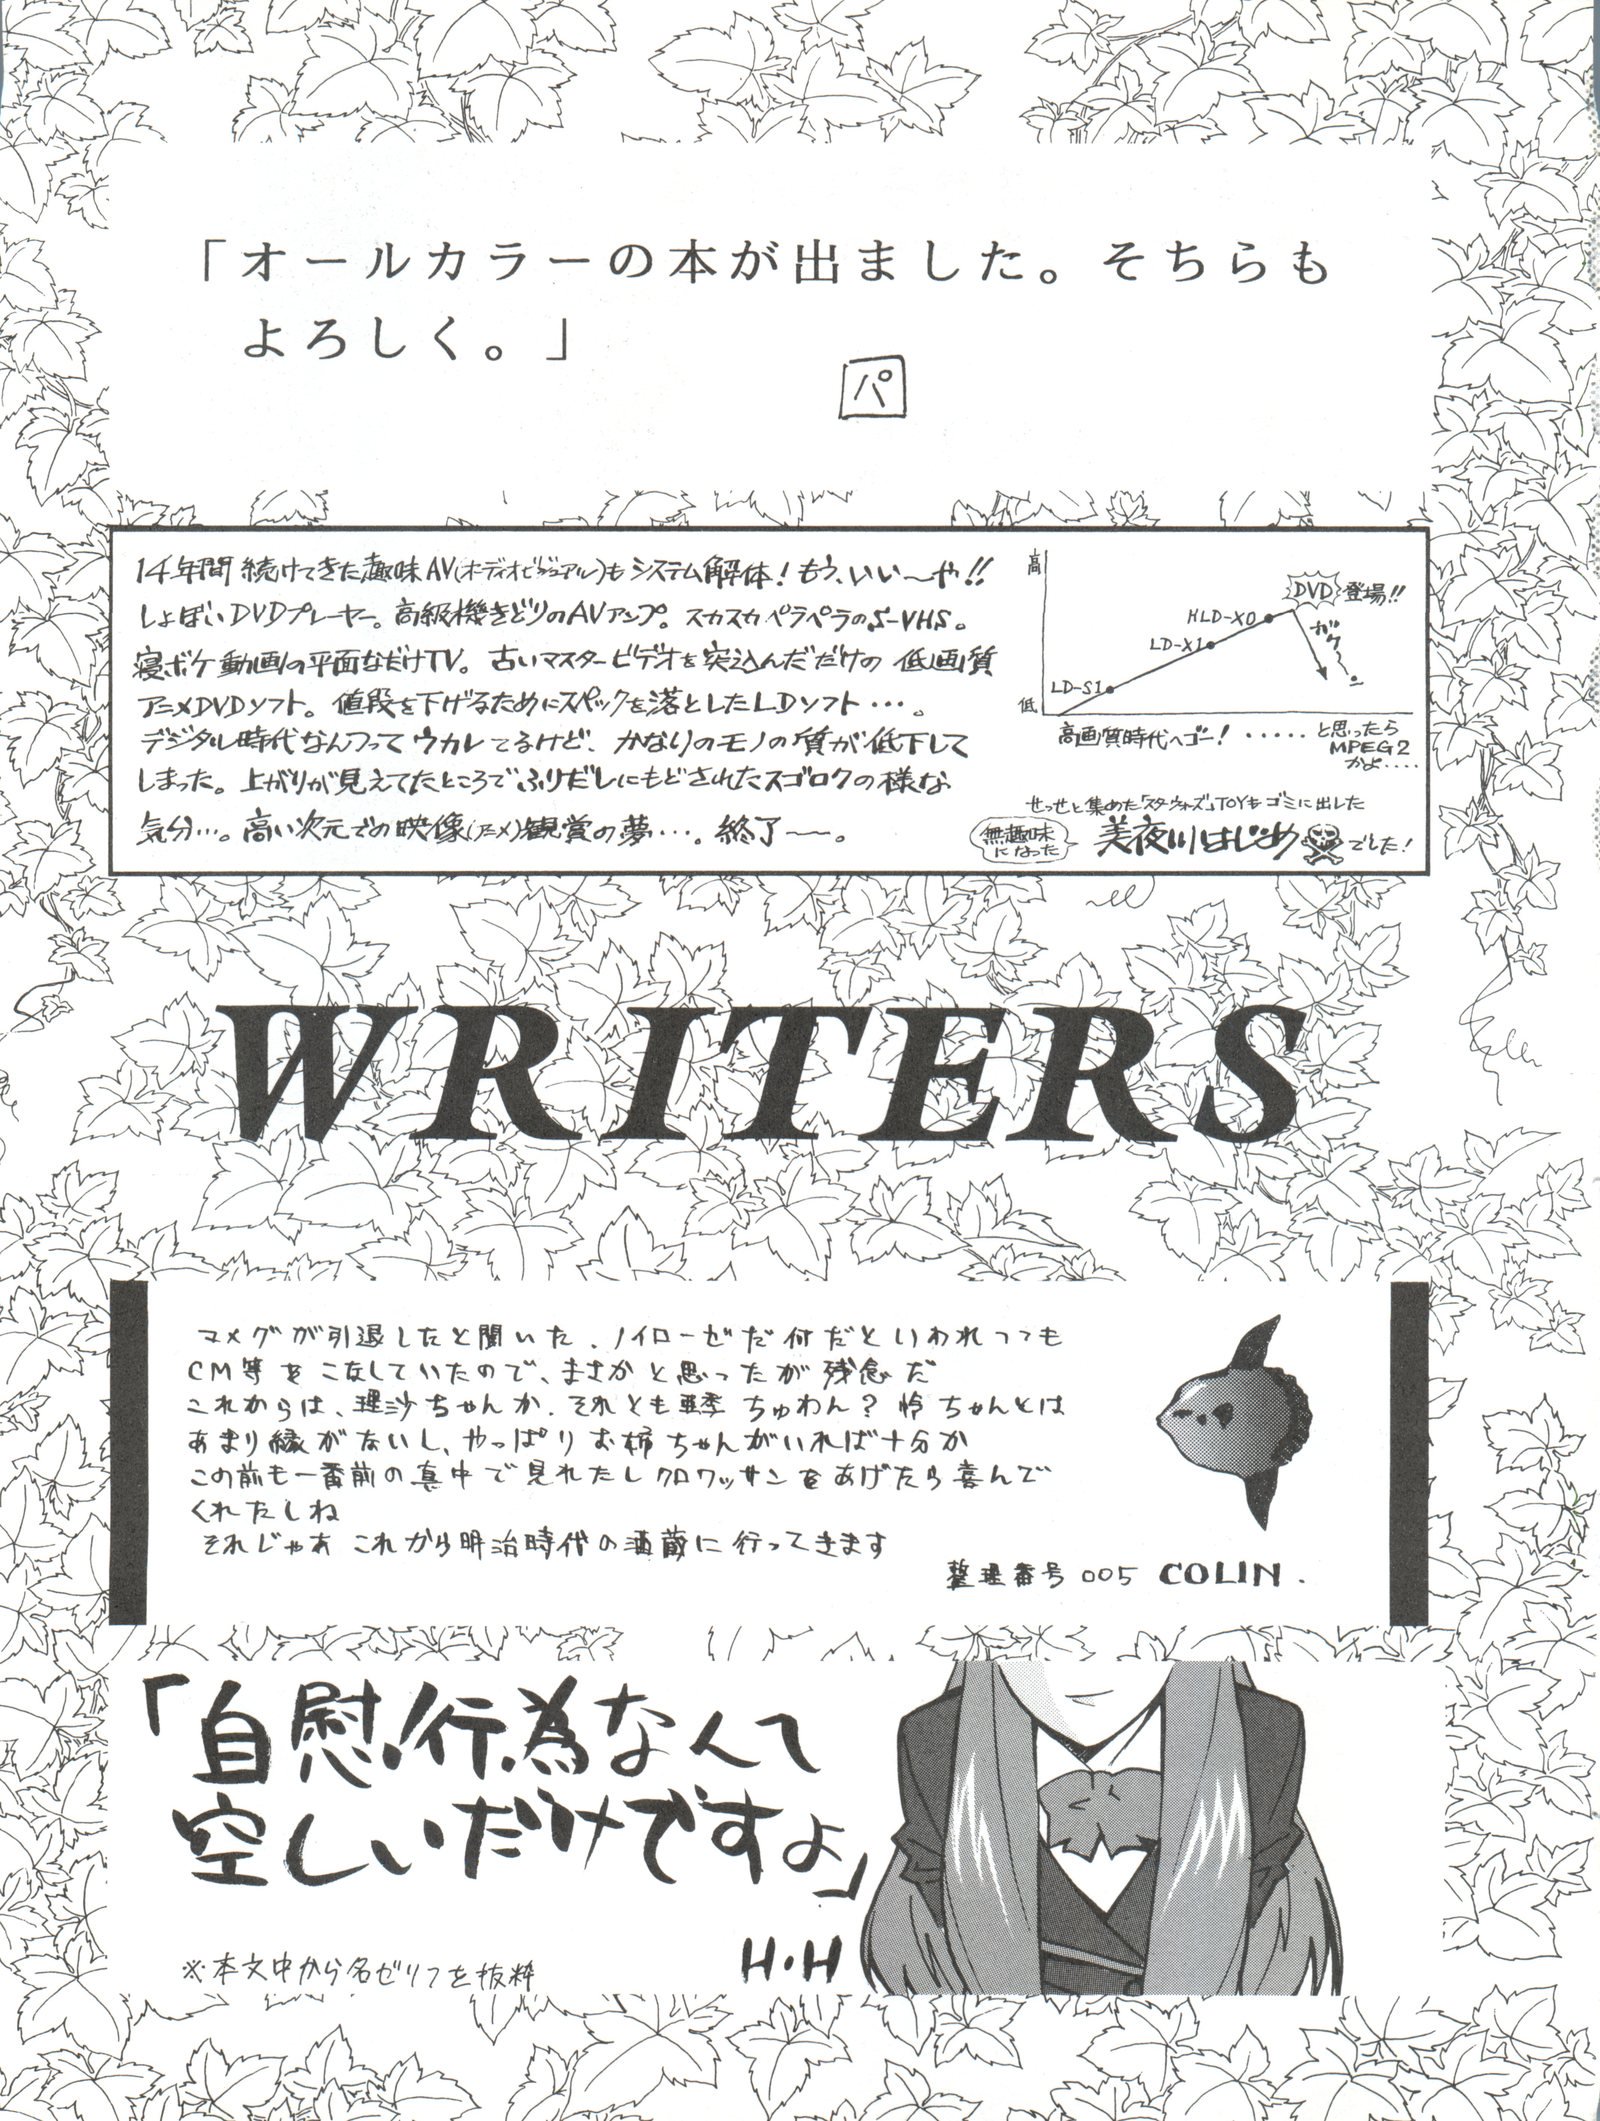 「オールカラーの本が出ました。そちらも
よろしく。」
パ
14年間続けてきた趣味AV(オーディオビジュアル)もシステム解体!もう、いい〜や!!
しょぼいDVDプレーヤー。高級機きどりのAVアンプ。スカスカペラペラのS-VHS。
寝ボケ動画の平面なだけTV。古いマスタービデオを突込んだだけの低画質
アニメDVDソフト。値段を下げるためにスペックを落としたLDソフト…。
デジタル時代なんつってウカレてるけど、かなりのモノの質が低下して
しまった。上がりが見えてたところでふりだしにもどされたスゴロクの様な
気分…。高い次元での映像(アニメ)観賞の夢…。終了〜。
高
低
LD-S1
LD-X1
HLD-X0
DVD登場!!
ガク〜ン
高画質時代へゴー!‥‥‥と思ったら
MPEG2
かよ‥‥
せっせと集めた「スターウォーズ」TOYもゴミに出した
無趣味
になった
美夜川はじめ でした!
WRITERS
マメグが引退したと聞いた、ノイローゼだ何だといわれつつも
CM等をこなしていたので、まさかと思ったが残念だ
これからは、理沙ちゃんか、それとも亜季ちゅわん?怜ちゃんとは
あまり縁がないし、やっぱりお姉ちゃんがいれば十分か
この前も一番前の真中で見れたしクロワッサンをあげたら喜んで
くれたしね
それじゃあ これから明治時代の酒蔵に行ってきます
整理番号 005 COLIN.
「自慰行為なんて
空しいだけですよ」
H・H
※本文中から名ゼリフを抜粋